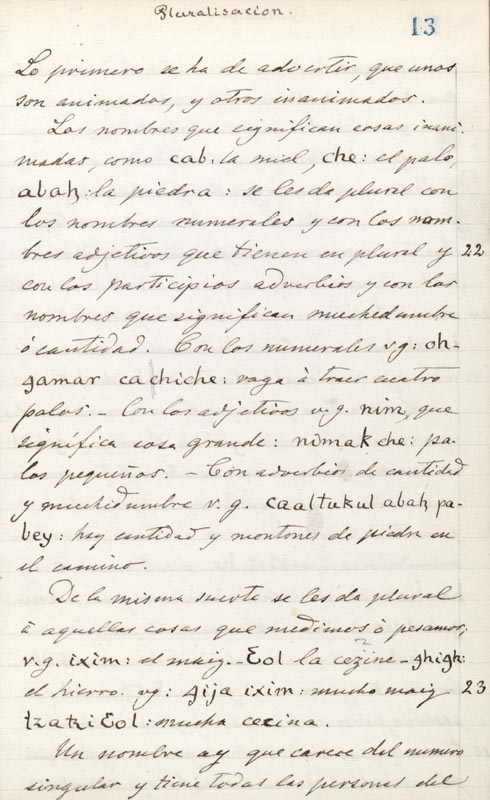 Pluralisacion.
13
Lo primero se ha de advertir, que unos
son animados, y otros inanimados.
Los nombres que significan cosas inani-
madas, como cab. la miel, che: el palo,
abaꜩ: la piedra: se les da plural con
los nombres numerales y con los nom-
bres adjetivos que tienen en plural y 22
con los participios adverbios y con los
nombres que significan muchedumbre
ó cantidad. Con los numerales vg: oh-
gamar cachiche: vaga à traer cuatro
palos. - Con los adjetivos v.g. nim, que
significa cosa grande: nimak che: pa-
los pequeños. - Con adverbios de cantidad
y muchidumbre v. g. caaltukul abaꜩ pa-
bey: hay cantidad y montones de piedra en
el camino.
De la misma suerte se les da plural
à aquellas cosas que medimos ò pesamos;
v.g. ixim: el maiz.- Ɛol la cezine - ghigh:
el hierro. vg: gija ixim: mucho maiz 23
tzatzi Ɛol: mucha cecina.
Un nombre ay que carece del numero
singular y tiene todas las personas del